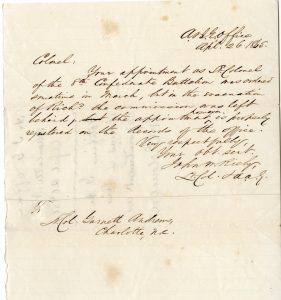 A & I G Office
Apl. 26 1865.
Colonel:
Your appointment as Lt Colonel
of the 8th Confederate Battalion was ordered
sometime in March, but in the evacuation
of Richd the commission was left
behind, but the appointmt is properly
registered on the Records of the office.
Very respectfully,
Your obt servt
John W. Riely
Lt Col. & A A G
To
Lt Col. Garnett Andrews,
Charlotte, N.C.